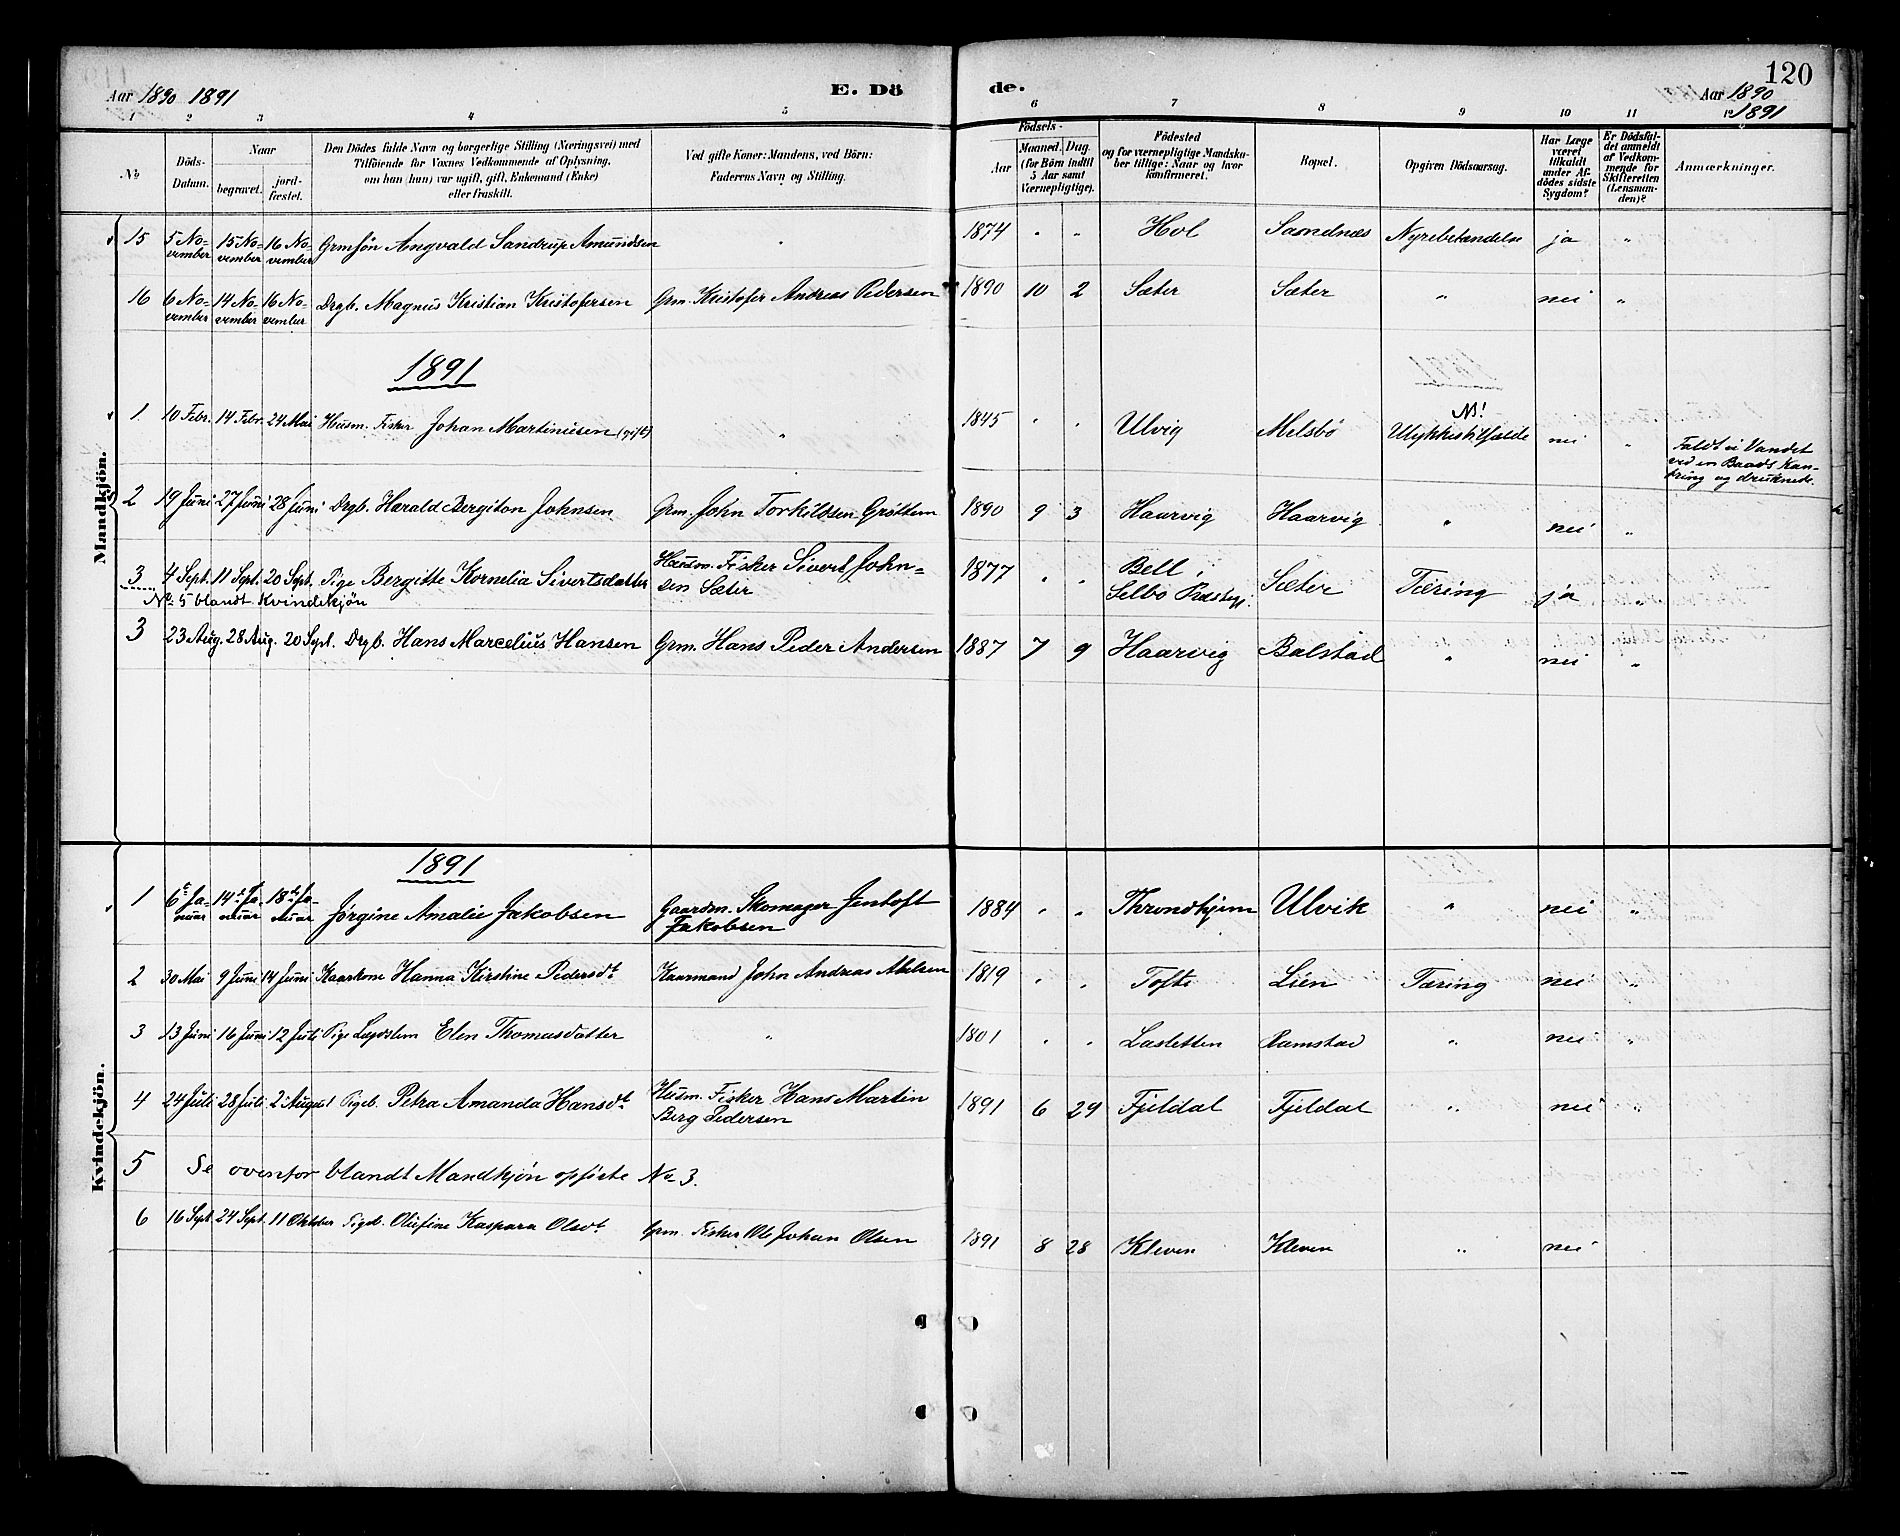 120
Aar 1890 1891 E. Dö de. Aar 1890 1891
1 2 3 4 5 6 7 8 9 10 11 12
No Döds-Datum. Naar begravet. jordfæstet. Den Dödes fulde Navn og borgerlige Stilling (Næringsvei) med Tilföiende for Voxnes Vedkommende af Oplysning, om han (hun) var ugift, gift, Enkemand (Enke) eller fraskilt. Ved gifte Koner: Mandens, ved Börn: Faderens Navn og Stilling. Födsels- Aar Maaned. Dag. (for Börn indtil 5 Aar samt Værnepligtige). Födested og for værnepligtige Mandskaber tillige: Naar og hvor konfirmeret. Bopæl. Opgiven Dödsaarsag. Har Læge været tilkaldt under Afdödes sidste Sygdom? Er Dödsfaldet anmeldt af Vedkommende for Skifteretten (Lensmanden)? Anmærkninger.
Mandkjön.
15 5 November 15 November 16 November Grmsön Angvald Sandrup Amundsen " 1874 " " Hol Sandnæs Nyrebetændelse ja "
16 6 November 14 November 16 November Drgb. Magnus Kristian Kristofersen Grm. Kristofer Andreas Pedersen 1890 10 2 Sæter Sæter " nei "
1891
1 10 Febr. 14 Febr. 24 Mai Husm. Fisker Johan Martinusen (gift) " 1845 " " Ulvig Melsbö NB! Ulykkestilfælde nei " Faldt i Vandet ved en Baads Kantring og druknede.
2 19 Juni 27 Juni 28 Juni Drgb. Harald Bergiton Johnsen Grm. John Torkildsen Gröttem 1890 9 3 Haarvig Haarvig " nei "
3 4 Sept. 11 Sept. 20 Sept. Pige Bergitte Kornelia Sivertsdatter Husm. Fisker Sivert Johnsen Sæter 1877 " " Bell, Selbo Præstegj. Sæter Tæring ja "
No 5 blandt Kvindekjön
3 23 Aug. 28 Aug. 20 Sept. Drgb. Hans Marcelius Hansen Grm. Hans Peder Andersen 1887 7 9 Haarvig Balstad " nei "
Kvindekjön.
1891
1 6te Januar 14de Januar 18de Januar Jørgine Amalie Jakobsen Gaardm. Skomager Jentoft Jakobsen 1884 " " Throndhjem Ulvik " nei "
2 30 Mai 9 Juni 14 Juni Kaarkone Hanna Kirstine Pedersdt Kaarmand John Andreas Abelsen 1819 " " Tofte Lien Tæring nei "
3 13 Juni 16 Juni 12 Juli Pige Lægdslem Elen Thomasdatter " 1801 " " Lasletten Ramstad " nei "
4 24 Juli 28 Juli 2 August Pigeb. Petra Amanda Hansdt Husm. Fisker Hans Martin Berg Pedersen 1891 6 29 Fjeldal Fjeldal " nei "
5 Se ovenfor blandt Mandkjön opförte No 3.
6 16 Sept. 24 Sept. 11 Oktober Pigeb. Olufine Kaspara Olsdt Grm. Fisker Ole Johan Olsen 1891 8 28 Kleven Kleven " nei